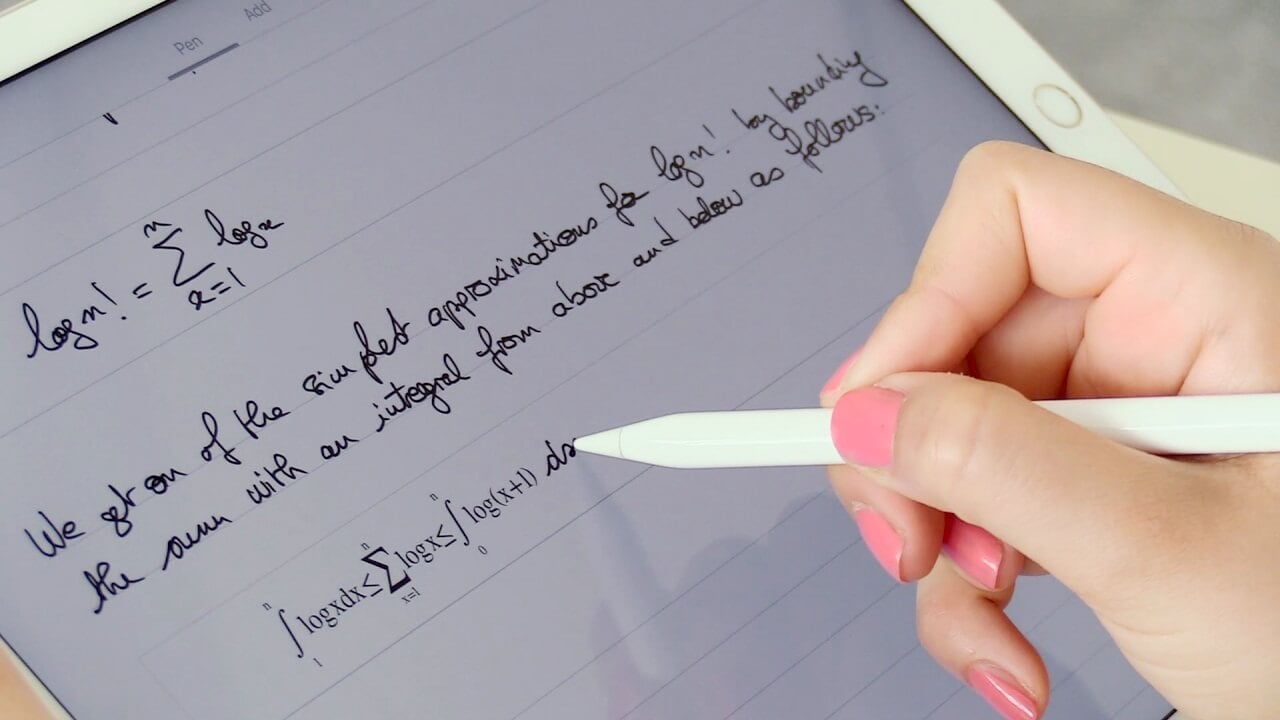 Pen Add
log n! = ∑_{x=1}^{n} log x
We get on of the simplest approximations for log n! by bounding
the sum with an integral from above and below as follows:
∫_{1}^{n} logxdx ≤ ∑_{x=1}^{n} logx ≤ ∫_{0}^{n} log(x+1) dx